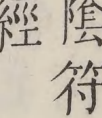 陰符
經